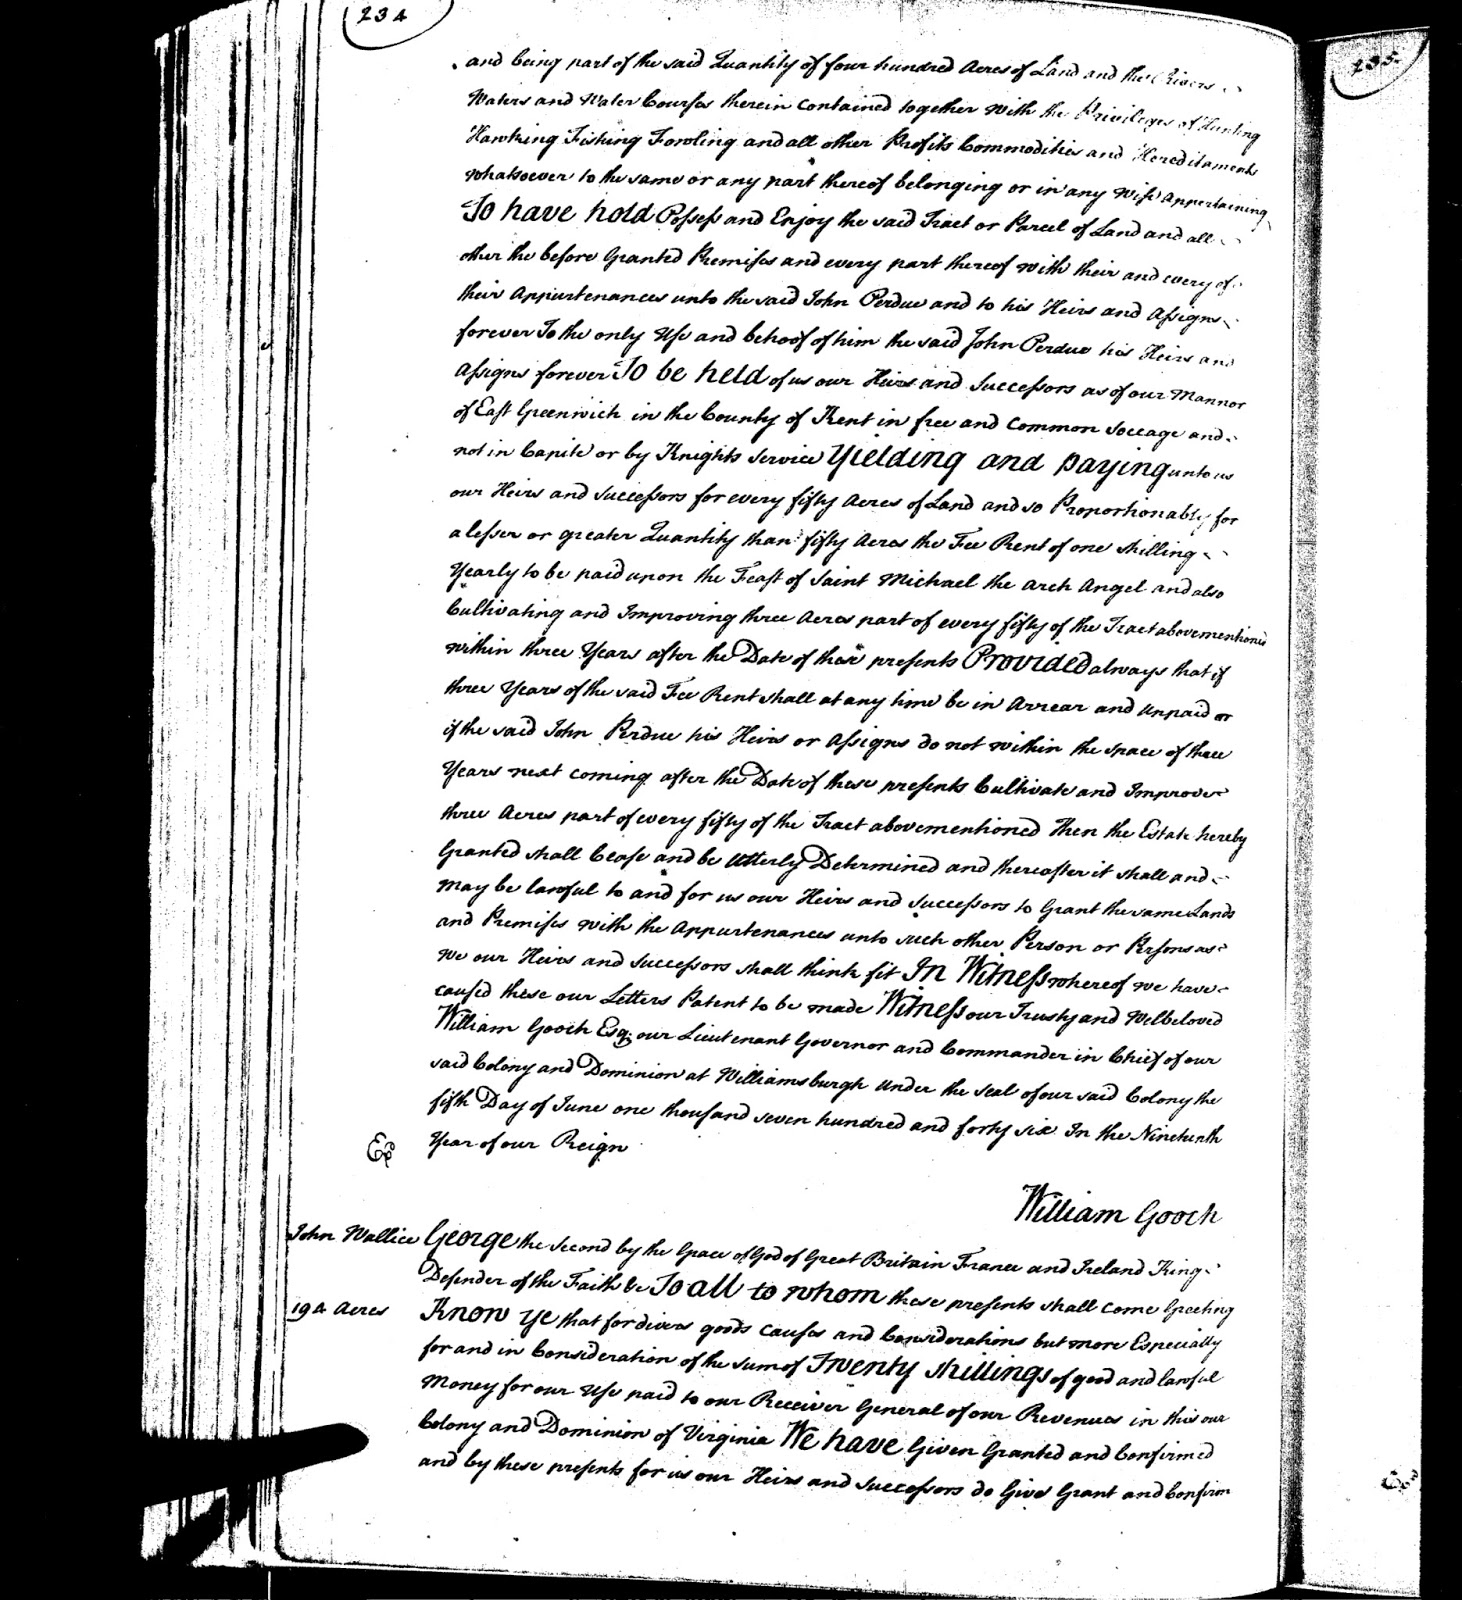 234
235
and being part of the said Quantity of four hundred Acres of Land and the Rivers
Waters and Water Courses therein contained together with the Privileges of Hunting
Hawking Fishing Fowling and all other Profits Commodities and Hereditaments
whatsoever to the same or any part thereof belonging or in any wise appertaining
To have hold Possess and Enjoy the said Tract or Parcel of Land and all
other the before Granted Premises and every part thereof with their and every of
their Appurtenances unto the said John Perdue and to his Heirs and Assigns
forever To the only Use and behoof of him the said John Perdue his Heirs and
Assigns forever To be held of us our Heirs and Successors as of our Mannor
of East Greenwich in the County of Kent in free and common Soccage and
not in Capite or by Knights Service Yielding and paying unto us
our Heirs and Successors for every fifty Acres of Land and so Proportionably for
a lesser or greater Quantity than fifty Acres the Fee Rent of one shilling
Yearly to be paid upon the Feast of Saint Michael the Arch Angel and also
Cultivating and Improving three Acres part of every fifty of the Tract abovementioned
within three Years after the Date of these presents Provided always that if
three Years of the said Fee Rent shall at any time be in Arrear and unpaid or
if the said John Perdue his Heirs or Assigns do not within the space of three
Years next coming after the Date of these presents Cultivate and Improve
three Acres part of every fifty of the Tract abovementioned Then the Estate hereby
Granted shall Cease and be Utterly Determined and thereafter it shall and
may be lawful to and for us our Heirs and Successors to Grant the same Lands
and Premises with the Appurtenances unto such other Person or Persons as
We our Heirs and Successors shall think fit In Witness whereof we have
caused these our Letters Patent to be made Witness our Trusty and Welbeloved
William Gooch Esq. our Lieutenant Governor and Commander in Chief of our
said Colony and Dominion at Williamsburgh Under the Seal of our said Colony the
fifth Day of June one thousand seven hundred and forty six In the Nineteenth
Year of our Reign
William Gooch
John Wallice
George the Second by the Grace of God of Great Britain France and Ireland King
Defender of the Faith &c To all to whom these presents shall come Greeting
194 Acres
Know Ye that for divers goods causes and Considerations but more Especially
for and in Consideration of the sum of Twenty shillings of good and lawful
Money for our Use paid to our Receiver General of our Revenues in this our
Colony and Dominion of Virginia We have Given Granted and Confirmed
and by these presents for us our Heirs and Successors do Give Grant and Confirm